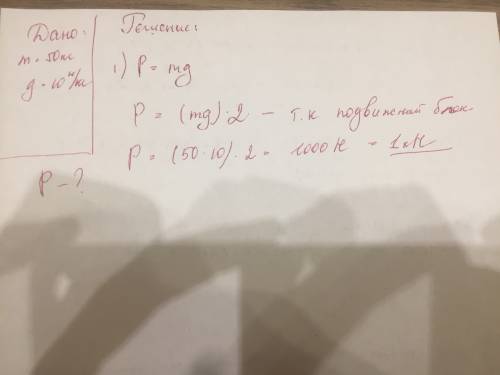 Дано:
m = 50кг
g = 10 н/кг
P - ?
Решение:
1) P = mg
P = (mg)·2 - т.к подвижный блок
P = (50·10)·2 = 1000 Н = 1кН